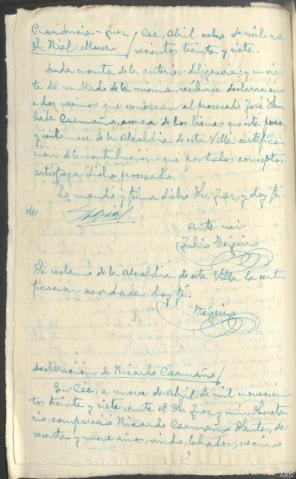 Providencia Juez / Cee, Abril ocho de mil no-
Sr. Rial Mouro / vecientos treinta y siete.
Dada cuenta de la anterior diligencia; y en vis-
ta del resultado de la misma, recíbase declaración
a dos vecinos que conozcan al procesado José
Caamaño, acerca de los bienes que éste posea
y intérese de la Alcaldía de esta Villa certifica-
ción de la contribución que por todos conceptos
satisfaga dicho procesado.
Lo mandó y firma dicho Sr. Juez doy fé.
Rial
Ante mi
Julio
Se reclama de la Alcaldía de esta Villa la certi-
ficación acordada doy fé.
declaración de Ricardo Caamaño /
En Cee, a nueve de Abril de mil novecien-
tos treinta y siete, ante el Sr. Juez y mi, Secreta-
rio, compareció Ricardo Caamaño de
sesenta y nueve años, viudo, labrador, vecino